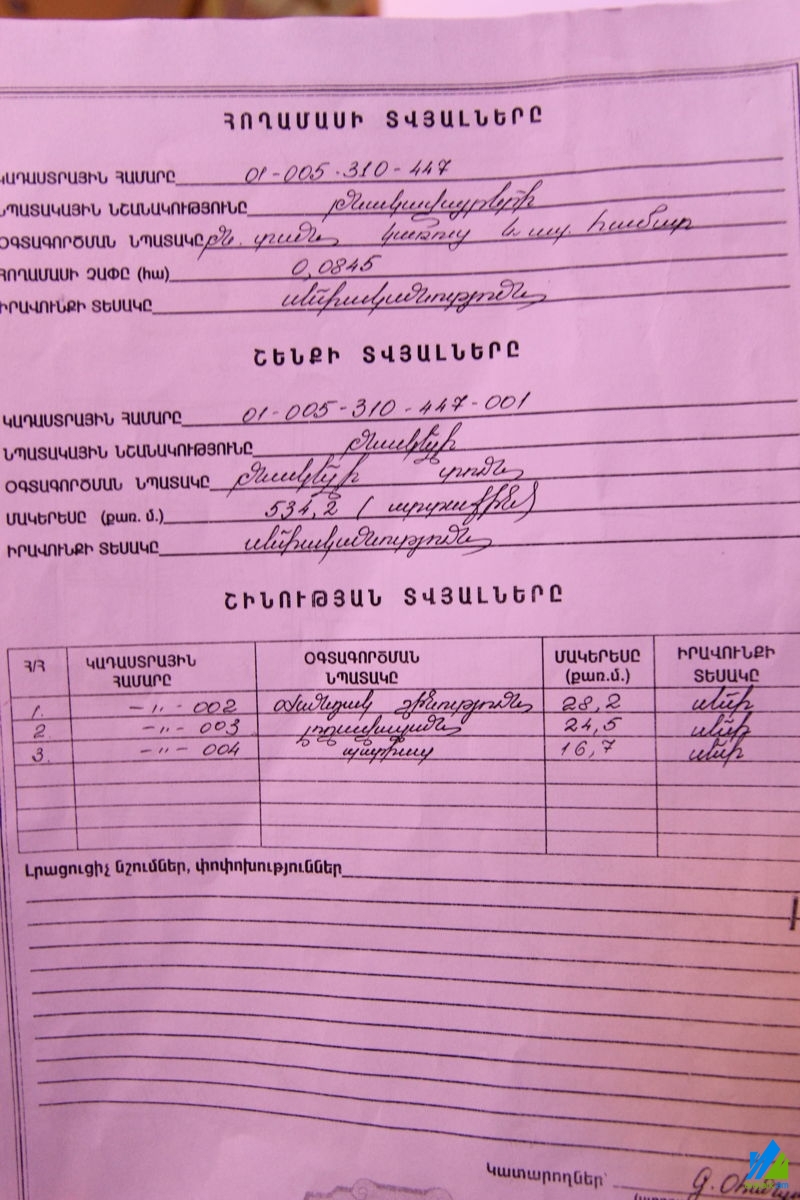 ՀՈՂԱՄԱՍԻ ՏՎՅԱԼՆԵՐԸ
ԿԱԴԱՍՏՐԱՅԻՆ ՀԱՄԱՐԸ 01-005-310-447
ՆՊԱՏԱԿԱՅԻՆ ՆՇԱՆԱԿՈՒԹՅՈՒՆԸ բնակավայրերի
ՕԳՏԱԳՈՐԾՄԱՆ ՆՊԱՏԱԿԸ բն. տան կառուց և սպ. համար
ՀՈՂԱՄԱՍԻ ՉԱՓԸ (հա) 0,0845
ԻՐԱՎՈՒՆՔԻ ՏԵՍԱԿԸ սեփականություն
ՇԵՆՔԻ ՏՎՅԱԼՆԵՐԸ
ԿԱԴԱՍՏՐԱՅԻՆ ՀԱՄԱՐԸ 01-005-310-447-001
ՆՊԱՏԱԿԱՅԻՆ ՆՇԱՆԱԿՈՒԹՅՈՒՆԸ բնակելի
ՕԳՏԱԳՈՐԾՄԱՆ ՆՊԱՏԱԿԸ բնակելի տուն
ՄԱԿԵՐԵՍԸ (քառ. մ.) 534,2 (արտաքին)
ԻՐԱՎՈՒՆՔԻ ՏԵՍԱԿԸ սեփականություն
ՇԻՆՈՒԹՅԱՆ ՏՎՅԱԼՆԵՐԸ
Հ/Հ ԿԱԴԱՍՏՐԱՅԻՆ ՀԱՄԱՐԸ ՕԳՏԱԳՈՐԾՄԱՆ ՆՊԱՏԱԿԸ ՄԱԿԵՐԵՍԸ (քառ.մ.) ԻՐԱՎՈՒՆՔԻ ՏԵՍԱԿԸ
1. -〃- 002 օժանդակ շինություն 28,2 սեփ
2. -〃- 003 լողավազան 24,5 սեփ
3. -〃- 004 պատիպ 16,7 սեփ
Լրացուցիչ նշումներ, փոփոխություններ
Կատարողներ՝